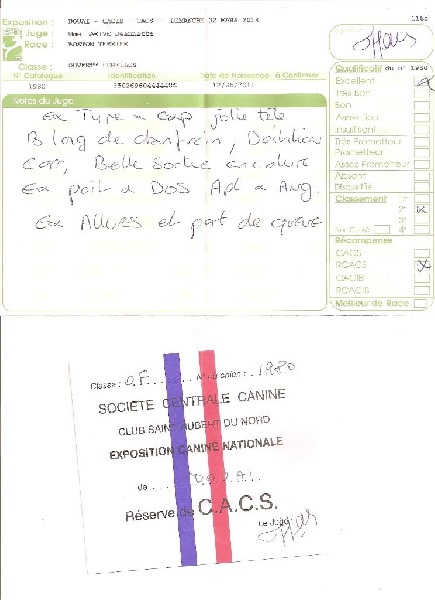 Exposition : DOUAI - CACIB - CACS - DIMANCHE 02 MARS 2014
Juge : Mme
Race : BOSTON TERRIER
Classe : OUVERTE FEMELLES
N° Catalogue Identification Date de Naissance à Confirmer
1980
Notes du Juge
Ex Type & corp jolie tête
B long de chanfrein, Dentition
Cor, Belle Sortie encolure
Ex poit & DOS Apl & Ang.
Ex Allures et port de queue
Qualificatif du n° 1980
Excellent
Très Bon
Bon
Assez Bon
Insuffisant
Très Prometteur
Prometteur
Assez Prometteur
Absent
Disqualifié
Classement
1er
2e
3e
Non Classé 4e
Récompense
CACS
RCACS
CACIB
RCACIB
Meilleur de Race
Classe : O.F. N° 1980
SOCIÉTÉ CENTRALE CANINE
CLUB SAINT HUBERT DU NORD
EXPOSITION CANINE NATIONALE
de DOUAI
Réserve de C.A.C.S.
Le Juge